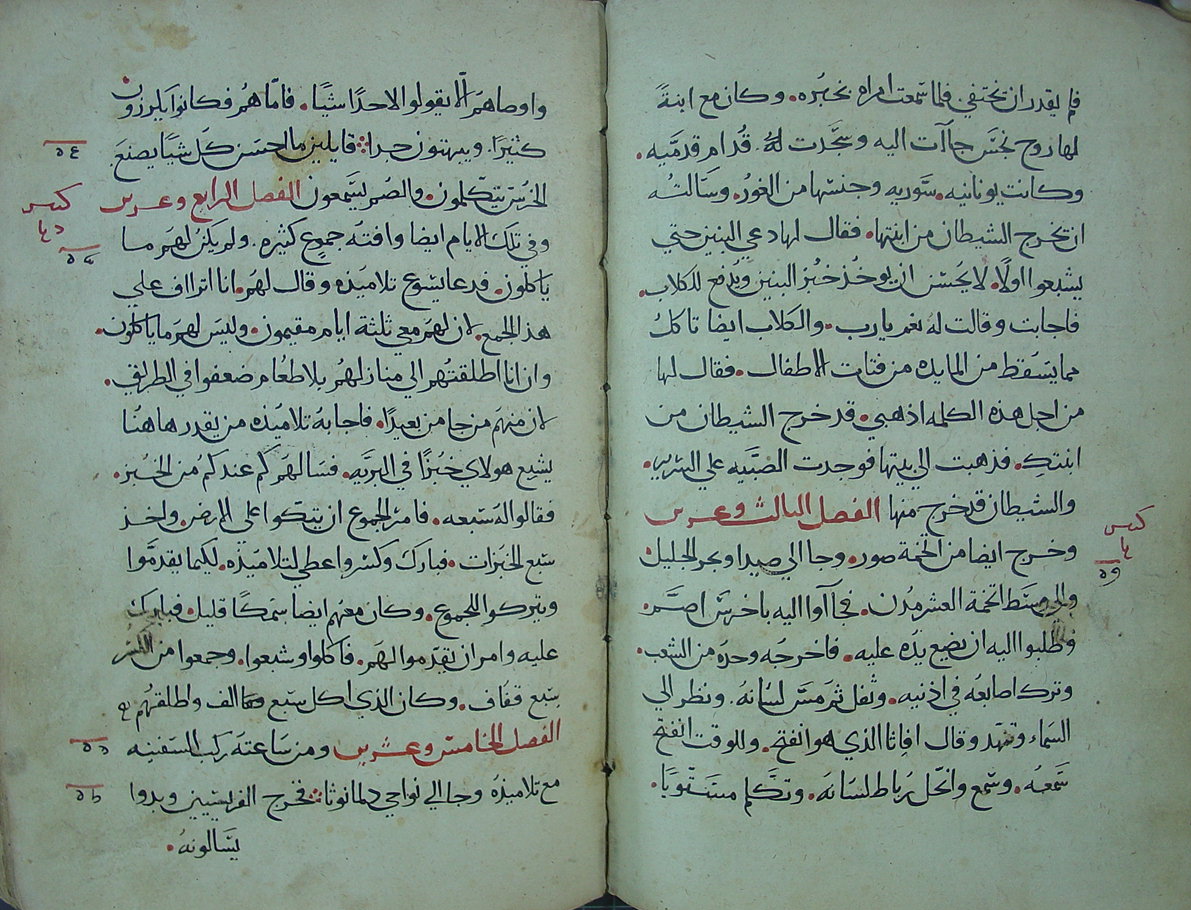 فلم يقدر ان يختفي فلما سمعت امراه بخبره. وكان مع ابنة
لها روح نجس جاآت اليه وسجدت له قدام قدميه.
وكانت يونانيه. سوريه وجنسها من الغور. وسالته
ان يخرج الشيطان من ابنتها. فقال لها دعي البنين حتي
يشبعوا اولا. لا يحسن ان يوخذ خبز البنين ويدفع للكلاب.
فاجابت وقالت له نعم يارب. والكلاب ايضا تاكل
مما يتسقط من المايده من فتات الاطفال. فقال لها
من اجل هذه الكلمه اذهبي. قد خرج الشيطان من
ابنتك. فذهبت الي بيتها فوجدت الصبيه علي السرير.
والشيطان قد خرج منها الفصل الثالث وعشرين
وخرج ايضا من تخمة صور. وجا الي صيدا وبحر الجليل
والي وسط اتخمة العشر مدن. فجاآوا اليه باخرس اصم.
وطلبوا اليه ان يضع يده عليه. فاخرجه وحده من الشعب.
وترك اصابعه في اذنيه. وتفل ثم مس لسانه. ونظر الي
السماء وتنهد وقال افاثا الذي هو انفتح. وللوقت انفتح
سمعه. وسمع وانحل رباط لسانه. وتكلم مستويا.
واوصاهم الا يقولوا لاحدا شيا. فاما هم فكانوا يكرزون
كثيرا. ويبهتون جدا قايلين ما احسن كل شيا يصنع
الخرس يتكلمون. والصم يسمعون الفصل الرابع وعشرين
وفي تلك الايام ايضا وافته جموع كثيره. ولم يكن لهم ما
ياكلون. فدعا يسوع تلاميذه وقال لهم. انا اتراف علي
هذ الجمع. لان لهم معي ثلثة ايام مقيمون. وليس لهم ما ياكلون.
وان انا اطلقتهم الي منازلهم بلا طعام ضعفوا في الطريق.
لان منهم من جا من بعيدا. فاجابه تلاميذه من يقدر هاهنا
يشبع هولاي خبزا في البريه. فسالهم كم عندكم من الخبز.
فقالوا له سبعه. فامر الجموع ان يتكوا علي الارض. واخذ
سبع الخبزات. فبارك وكسر واعطي لتلاميذه. لكيما يقدموا
ويتركوا للجموع. وكان معهم ايضا سمكا قليل. فبارك
عليه وامر ان يقدموا لهم. فاكلوا وشبعوا. وجمعوا من الكسر
سبع قفاف. وكان الذي اكل سبع الف واطلقهم
الفصل الخامس وعشرين ومن ساعته ركب السفينه
مع تلاميذه وجا الي نواحي دلمانوثا فخرج الفريسيين وبدوا
يسالونه.